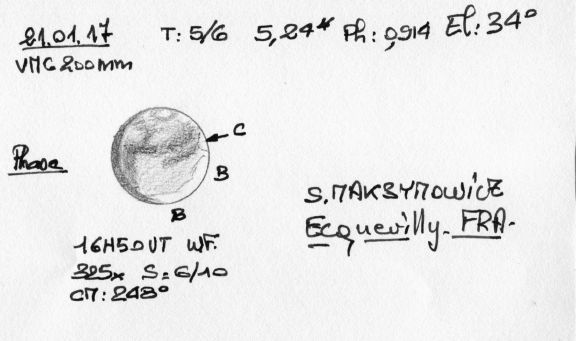 21.01.17 T: 5/6 5,24" Ph: 0,914 El: 34°
VMC 200mm
C
Phase
B
B
S. MAKSYMOWICZ
Ecquevilly - FRA.
16H50UT WF.
325x S: 6/10
CM: 248°